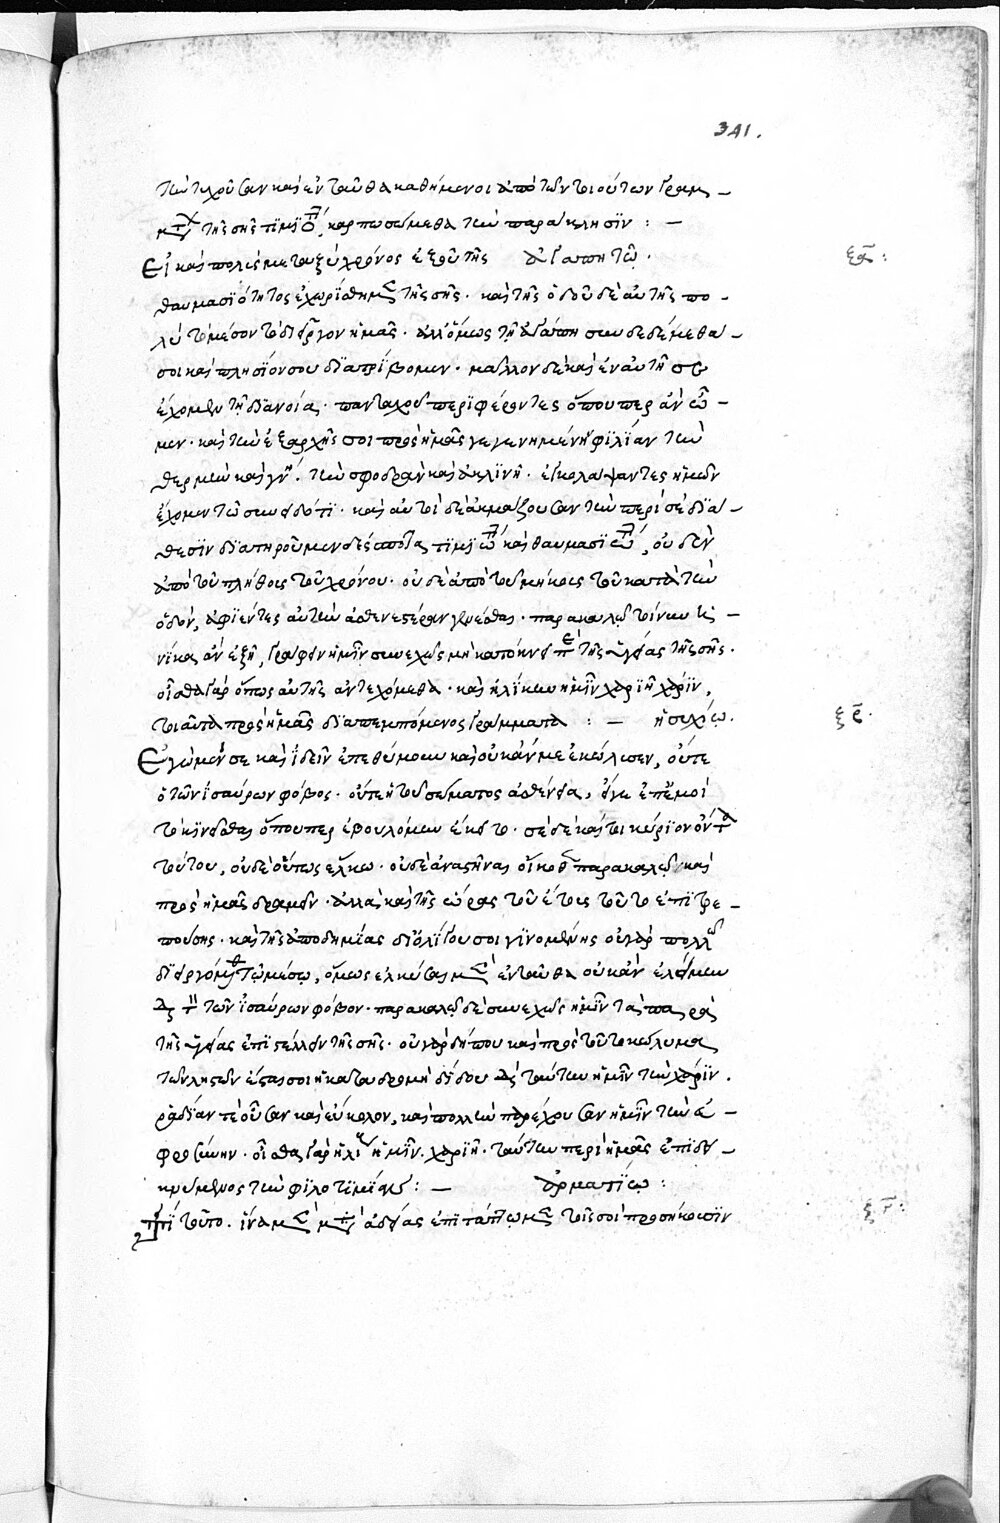 341.
τὴν τυχοῦσαν καὶ ἐνταῦθα καθήμενοι ἀπὸ τῶν τοιούτων γραμ-
μάτων τῆς σῆς τιμιότητος, καρπωσώμεθα τὴν παράκλησϊν : —
Εἰ καὶ πολὺς μεταξὺ χρόνος ἐξ οὗ τῆς ἀγαπητῶ. ξα:
θαυμασϊότητος ἐχωρίσθημεν τῆς σῆς. καὶ τῆς ὁδοῦ δὲ αὐτῆς πο-
λὺ τὸ μέσον τὸ διεῖργον ἡμᾶς. ἀλλ' ὅμως τῇ ἀγάπη σου δεδέμεθα
σοι καὶ πλησίον σου διατρίβομεν. μᾶλλον δὲ καὶ ἐν αὐτῇ σε
ἔχομεν τῇ διανοία. πανταχοῦ περϊφέροντες ὅπουπερ ἂν ὦ-
μεν. καὶ τὴν ἐξ ἀρχῆς σοι πρὸς ἡμᾶς γεγενημένην φιλίαν τὴν
θερμὴν καὶ γνησίαν. τὴν σφοδρὰν καὶ ἀκλινῆ. ἐγκολάψαντες ἡμῶν
ἔχομεν τῶ συνειδότι. καὶ αὐτοὶ δὲ ἀκμάζουσαν τὴν περί σε διά-
θεσϊν διατηροῦμεν δέσποτα τιμιώτατε καὶ θαυμασιώτατε, οὐδὲν
ἀπὸ τοῦ πλήθους τοῦ χρόνου. οὐδὲ ἀπὸ τοῦ μήκους τοῦ κατὰ τὴν
ὁδὸν, ἀφϊέντες αὐτὴν ἀσθενεστέραν γενέσθαι. παρακαλῶ τοίνυν ἡ-
νίκα ἂν ἐξῆ, γράφειν ἡμῖν συνεχῶς μὴ κατόκνει περὶ τῆς ὑγείας τῆς σῆς.
οἶσθα γὰρ ὅπως αὐτῆς ἀντεχόμεθα. καὶ ἡλίκην ἡμῖν χαριῆ χάριν,
τοιαῦτα πρὸς ἡμᾶς διαπεμπόμενος γράμματα : — ἡσυχίω. ξβ.
Ἐγὼ μέν σε καὶ ἰδεῖν ἐπεθύμουν καὶ οὐκ ἄν με ἐκώλυσεν, οὔτε
ὁ τῶν ἰσαύρων φόβος. οὔτε ἡ τοῦ σώματος ἀσθένεια, εἴγε ἐπ' ἐμοὶ
τὸ κινεῖσθαι ὅπουπερ ἐβουλόμην ἔκειτο. σὲ δὲ καίτοι κύριον ὄντα
τούτου, οὐδὲ οὕτως ἕλκω. οὐδὲ ἀναστῆναι οἴκοθεν παρακαλῶ καὶ
πρὸς ἡμᾶς δραμεῖν. ἀλλὰ καὶ τῆς ὥρας τοῦ ἔτους τοῦτο ἐπιτρε-
πούσης. καὶ τῆς ἀποδημίας δι' ὀλίγου σοι γινομένης οὐ γὰρ πολλαὶ
διειργόμεθα τῷ μέσῳ, ὅμως ἑλκύσαι μὲν ἐνταῦθα οὐκ ἂν ἑλοίμην
διὰ τὸν τῶν ἰσαύρων φόβον. παρακαλῶ δὲ συνεχῶς ἡμῖν τὰ παρὰ
τῆς ὑγείας ἐπϊστέλλειν τῆς σῆς. οὐ γὰρ δήπου καὶ πρὸς τοῦτο κώλυμα
τῶν ληστῶν ἔσται σοι ἡ καταδρομὴ δίδου δὴ ταύτην ἡμῖν τὴν χάριν.
ῥαδίαν τε οὖσαν καὶ εὔκολον, καὶ πολλὴν παρέχουσαν ἡμῖν τὴν εὐ-
φροσύνην. οἶσθα γὰρ ἡλίκα ἡμῖν χαριῆ. ταύτην περὶ ἡμᾶς ἐπϊδει-
κνύμενος τὴν φιλοτιμίαν : — ἁρματίω : ξγ:
Τί τοῦτο. ἵνα μὲν μετὰ ἀδείας ἐπιτάττωμεν τοῖς σοὶ προσήκουσϊν